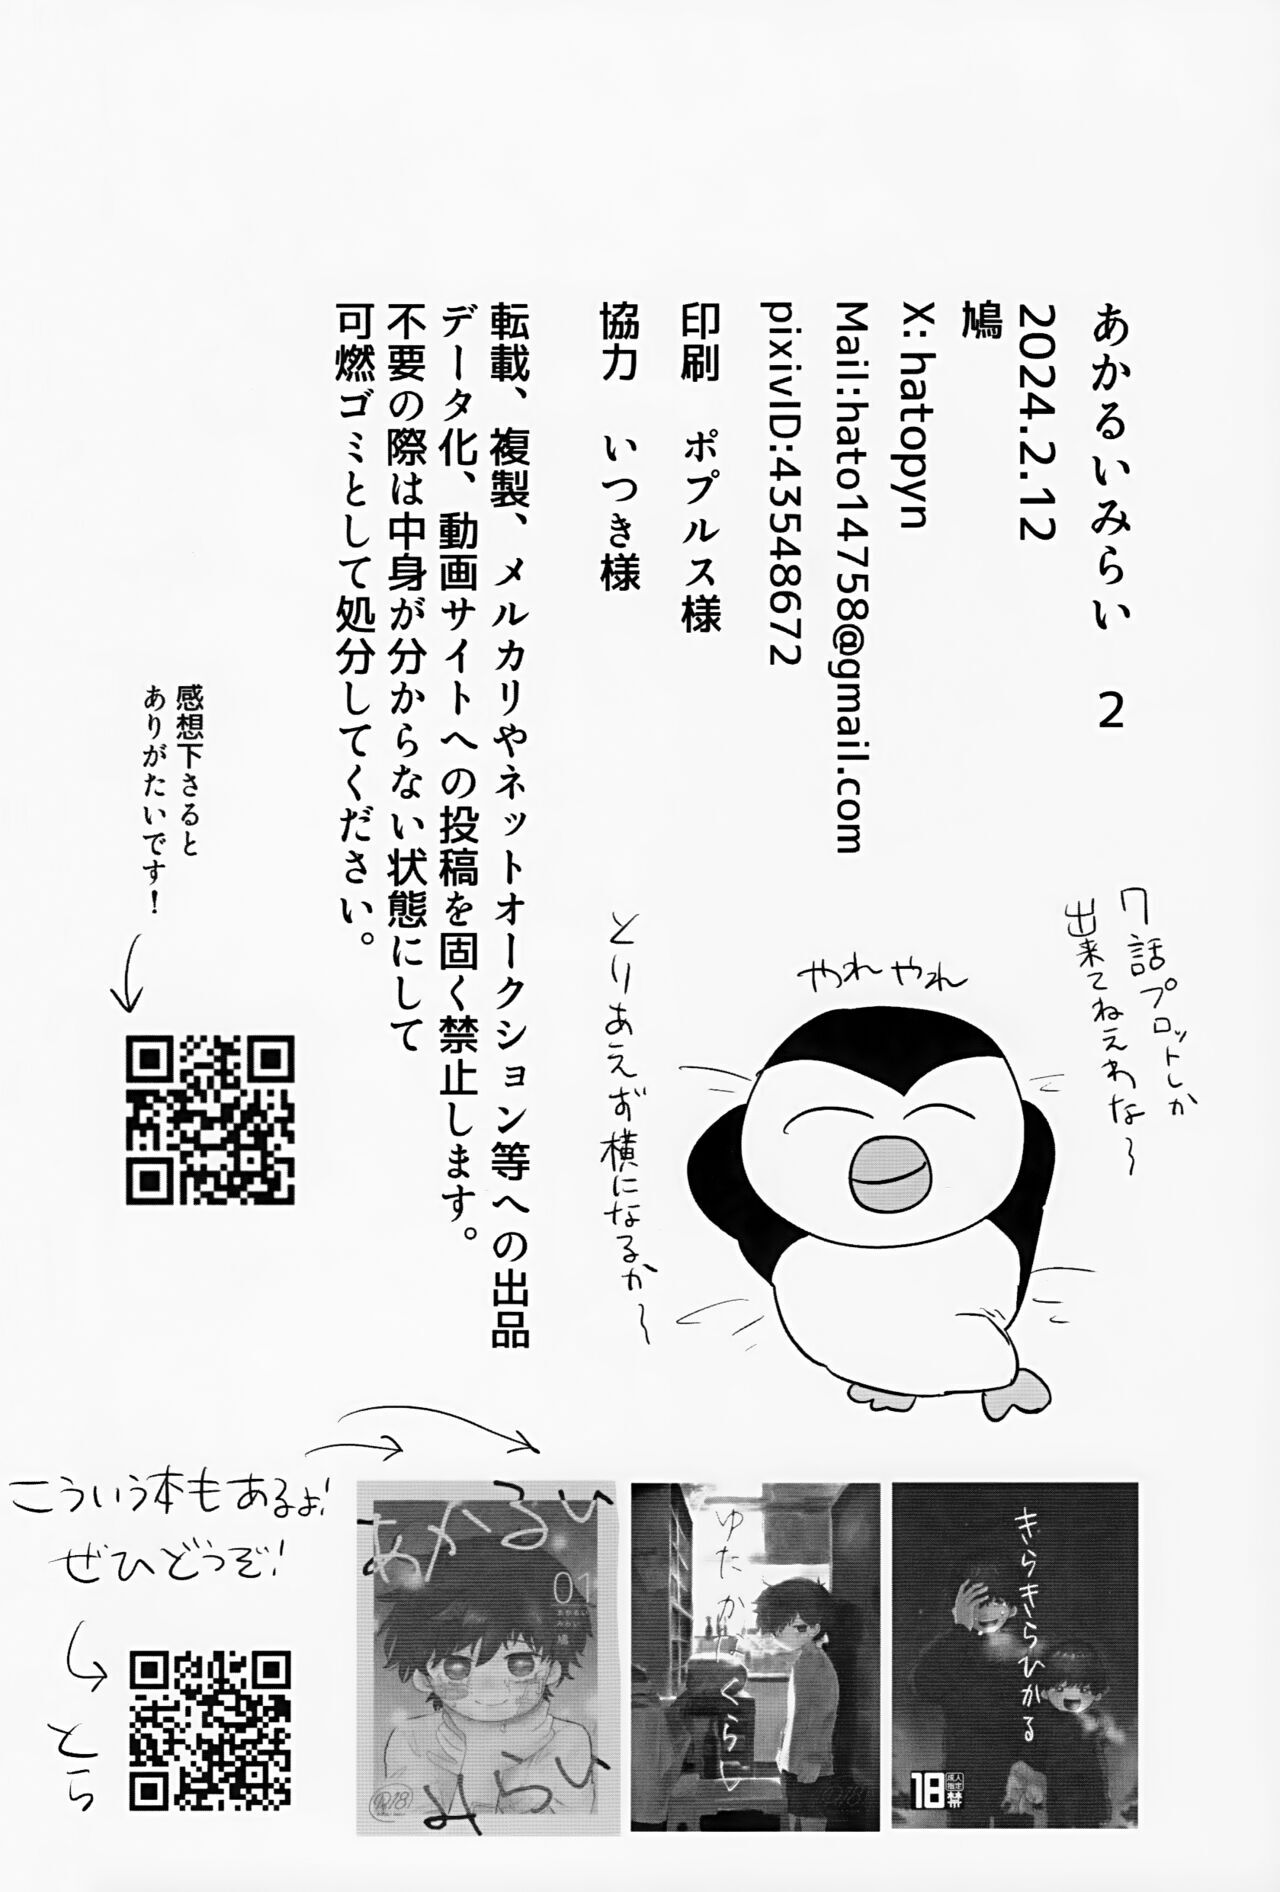 あかるいみらい　2
2024.2.12
鳩
X: hatopyn
Mail:hato14758@gmail.com
pixivID:43548672
印刷　ポプルス様
協力　いつき様
転載、複製、メルカリやネットオークション等への出品
データ化、動画サイトへの投稿を固く禁止します。
不要の際は中身が分からない状態にして
可燃ゴミとして処分してください。
7話プロットしか
出来てねえわな〜
やれやれ
とりあえず横になるか〜
感想下さると
ありがたいです！
こういう本もあるよ!
ぜひどうぞ!
とら
きらきらひかる
18
成人
指定
禁
ゆたかなくらし
R18
あかるい
みらい
01
あかるい
みらい
鳩
R18